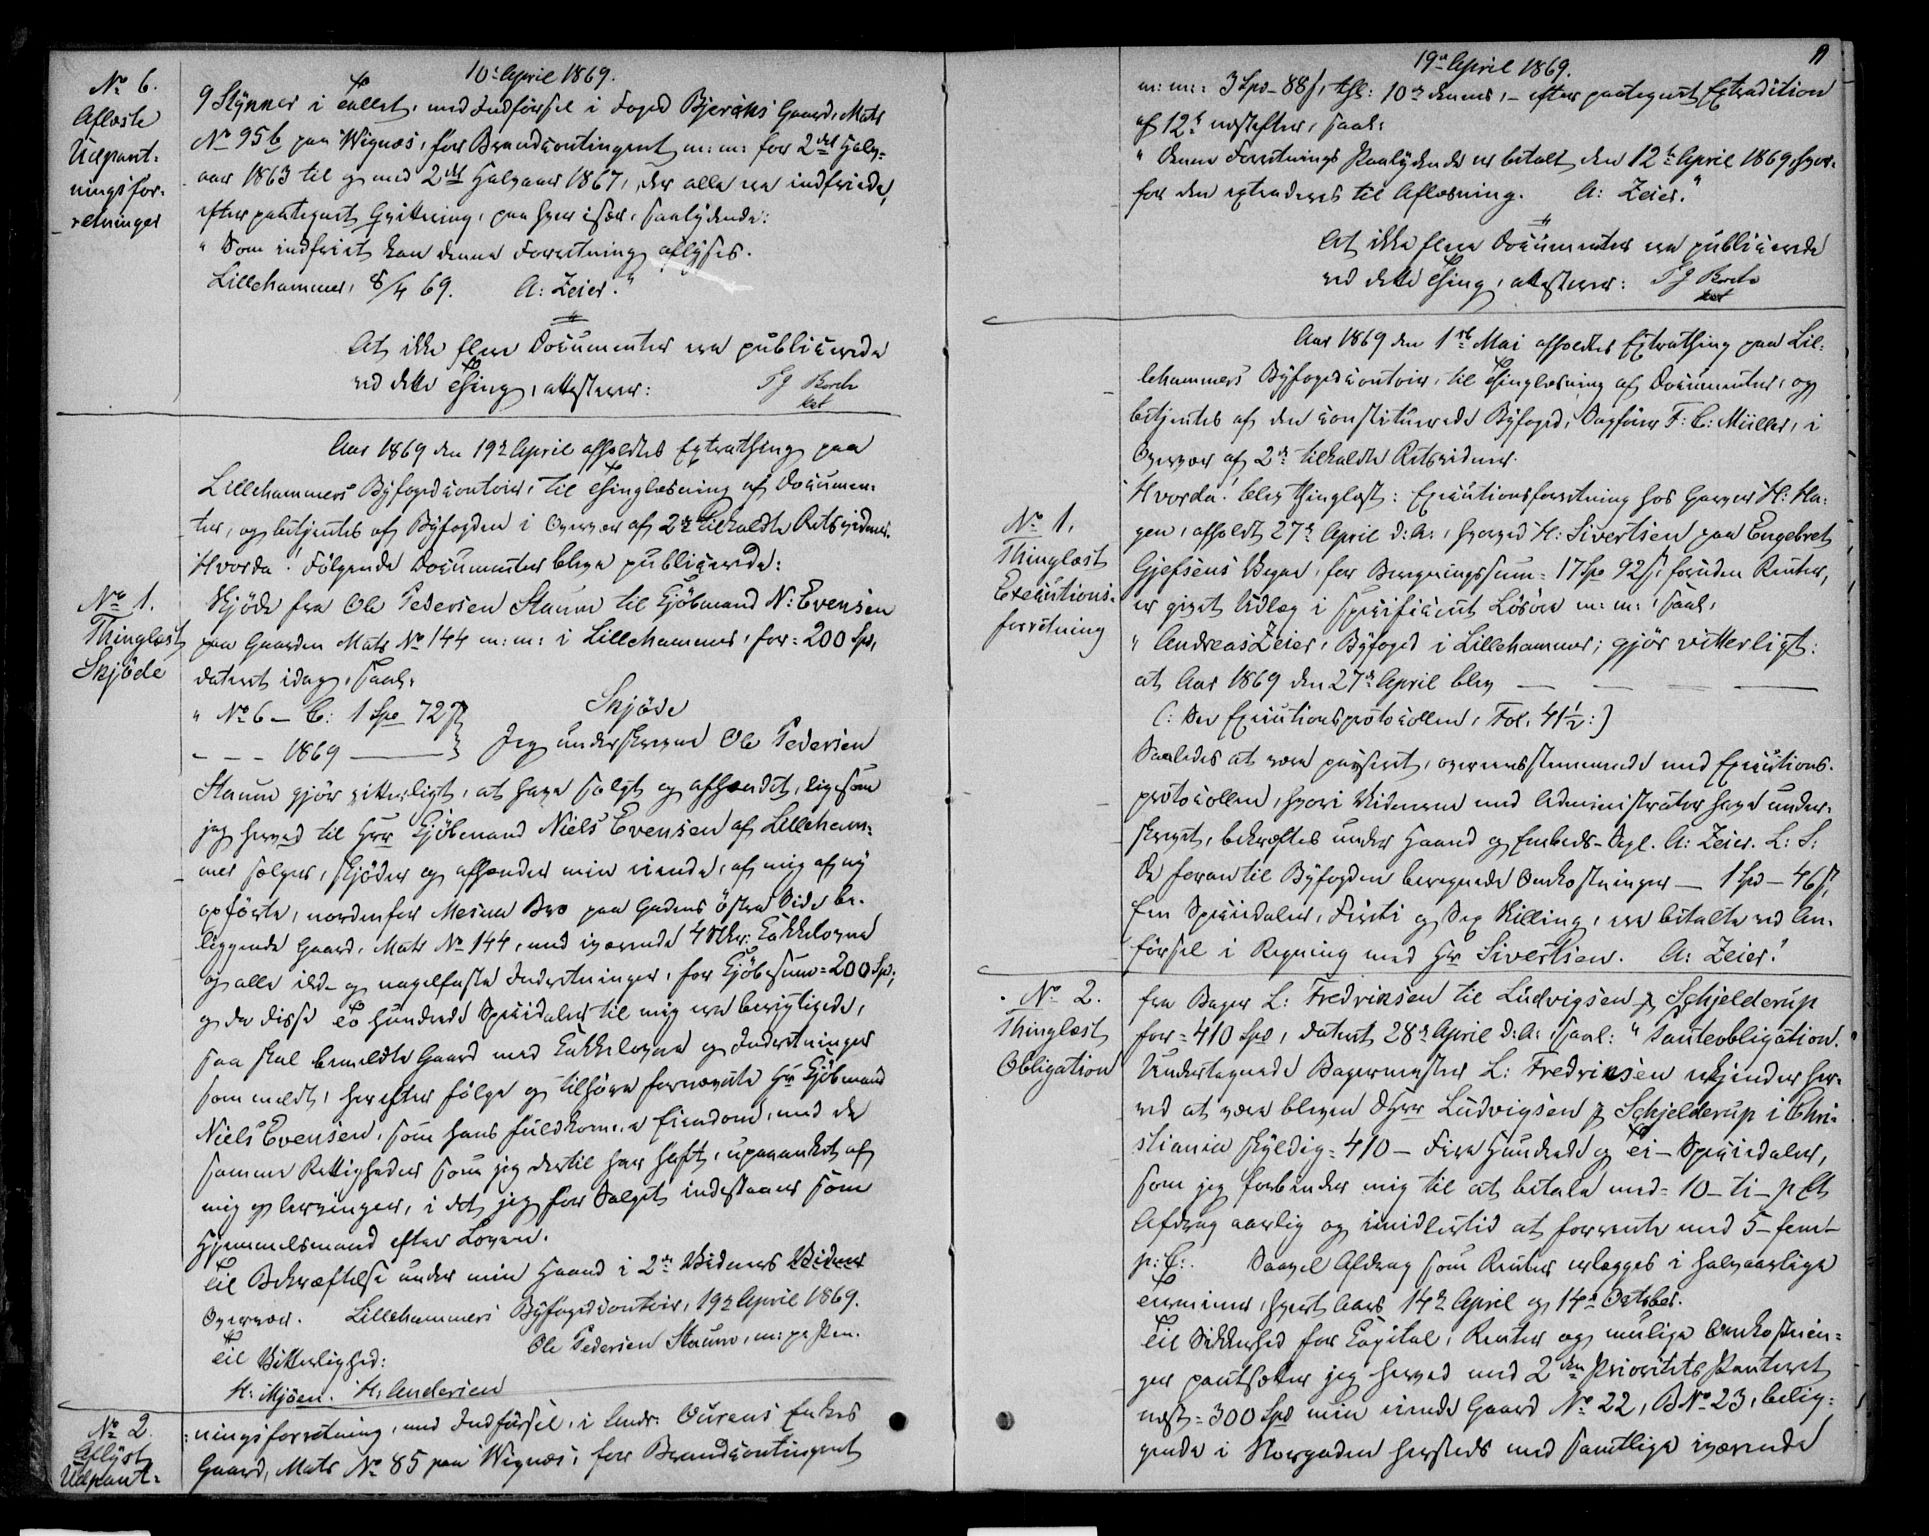 10de April 1869.
No 6.
Aflæste
Udpant-
ningsfor-
retninger
9 Stykker i Tallet, med Indførsel i Foged Bjerchs Gaard, Matr
No 95b paa Wignæs, for Brandcontingent m: m: for 2det Halv-
aar 1863 til og med 2det Halvaar 1867, der alle ere indfriede,
efter paategnet Qvittering, paa hver især, saalydende:
" Som indfriet kan denne Forretning aflyses.
Lillehammer, 8/4 69. A: Zeier."
At ikke flere Documenter ere publicerede
ved dette Thing, attesterer: Borch
kst
Aar 1869 den 19de April afholdtes Extrathing paa
Lillehammers Byfogedcontoir, til Thinglæsning af Documen-
ter, og betjentes af Byfogden i Overvær af 2de tilkaldte Retsvidner.
Hvorda! Følgende Documenter bleve publicerede:
No 1.
Thinglæst
Skjöde
Skjöde fra Ole Pedersen Staum til Kjöbmand N: Evensen
paa Gaarden Matr No 144 m: m: i Lillehammer, for = 200 Spd,
dateret idag, saal:
" No 6 – C: 1 Spd 72 s Skjöde
– – – 1869 — Jeg underskrevne Ole Pedersen
Staum gjör vitterligt, at have solgt og afhændet, ligesom
jeg herved til Herr Kjöbmand Niels Evensen af Lilleham-
mer sælger, skjöder og afhænder min eiende, af mig af ny
opförte, nordenfor Mesna Bro paa Gadens östre Side be-
liggende Gaard, Matr No 144, med iværende 4 Stkr: Kakkelovne
og alle ild- og nagelfaste Indretninger, for Kjöbesum = 200 Spd;
og da disse To Hundrede Speciedaler til mig ere berigtigede,
saa skal bemeldte Gaard med Kakkelovne og Indretninger
som meldt, herefter fölge og tilhöre fornævnte Hr Kjöbmand
Niels Evensen, som hans fuldkomne Eiendom, med de
samme Rettigheder som jeg dertil har haft, upaaanket af
mig og Arvinger, i det jeg for Salget indestaaer som
Hjemmelsmand efter Loven.
Til Bekræftelse under min Haand i 2de Vidners Vidner
Overvær. Lillehammers Byfogedcontoir, 19de April 1869.
Ole Pedersen Staum, m: p: Pen.
Til Vitterlighed:
H: Mjöen. H: Andersen
No 2.
Aflyst
Udpant-
ningsforretning, med Indförsel, i Andr: Ourens Enkes
Gaard, Matr No 85 paa Wignæs, for Brandcontingent
19de April 1869.
m: m: 3 Spd – 88 s, tgl: 10de dennes, – efter paategnet Extradition
af 12te næstefter, saal:
" Denne Forretnings Paalydende er betalt den 12te April 1869, hvor-
for den extraderes til Aflæsning. A: Zeier."
At ikke flere Documenter ere publicerede
ved dette Thing, attesterer: Borch
kst
Aar 1869 den 1ste Mai afholdtes Extrathing paa Lil-
lehammers Byfogedcontoir, til Thinglæsning af Documenter, og
betjentes af den constituerede Byfoged, Sagförer F: C: Müller, i
Overvær af 2de tilkaldte Retsvidner.
No 1.
Thinglæst
Executions-
forretning
Hvorda! blev thinglæst: Executionsforretning hos Garver H: Ha-
gen, afholdt 27de April d: A:, hvorved H: Sivertsen paa Engebret
Gjefsens Vegne, for Beregningssum = 17 Spd 92 s, foruden Renter,
er givet Udlæg i specificeret Lösöre m: m: , saal:
" Andreas Zeier, Byfoged i Lillehammer; gjör vitterligt:
at Aar 1869 den 27de April blev — — — —
(: See Executionsprotocollen, Fol. 41 1/2 :)
Saaledes at være passeret, overensstemmende med Executions-
protocollen, hvori Vidnerne med Administrator have under-
skrevet, bekræftes under Haand og Embeds-Segl. A: Zeier. L: S:
De foran til Byfogden beregnede Omkostninger — 1 Spd – 46 s,
Een Speciedaler, Firti og Sex Skilling, ere betalte ved An-
försel i Regning med Hr Sivertsen. A: Zeier."
No 2.
Thinglæst
Obligation
fra Bager L: Fredriksen til Ludvigsen & Schjelderup
for = 410 Spd, dateret 28de April d: A: , saal: " Panteobligation.
Undertegnede Bagermester L: Fredriksen erkjender her-
ved at være bleven DHrr Ludvigsen & Schjelderup i Chri-
stiania skyldig = 410 – Fire Hundrede og Ti – Speciedaler,
som jeg forbinder mig til at betale med = 10 – ti – p Ct
Afdrag aarlig og imidlertid at forrente med 5 – fem –
p: C:. Saavel Afdrag som Renter erlægges i halvaarlige
Terminer, hvert Aars 14de April og 14de October.
Til Sikkerhed for Capital, Renter og mulige Omkostnin-
ger pantsætter jeg herved med 2den Prioritets Panteret
næst = 300 Spd min eiende Gaard No 22, B No 23, belig-
gende i Storgaden hersteds med samtlige iværende